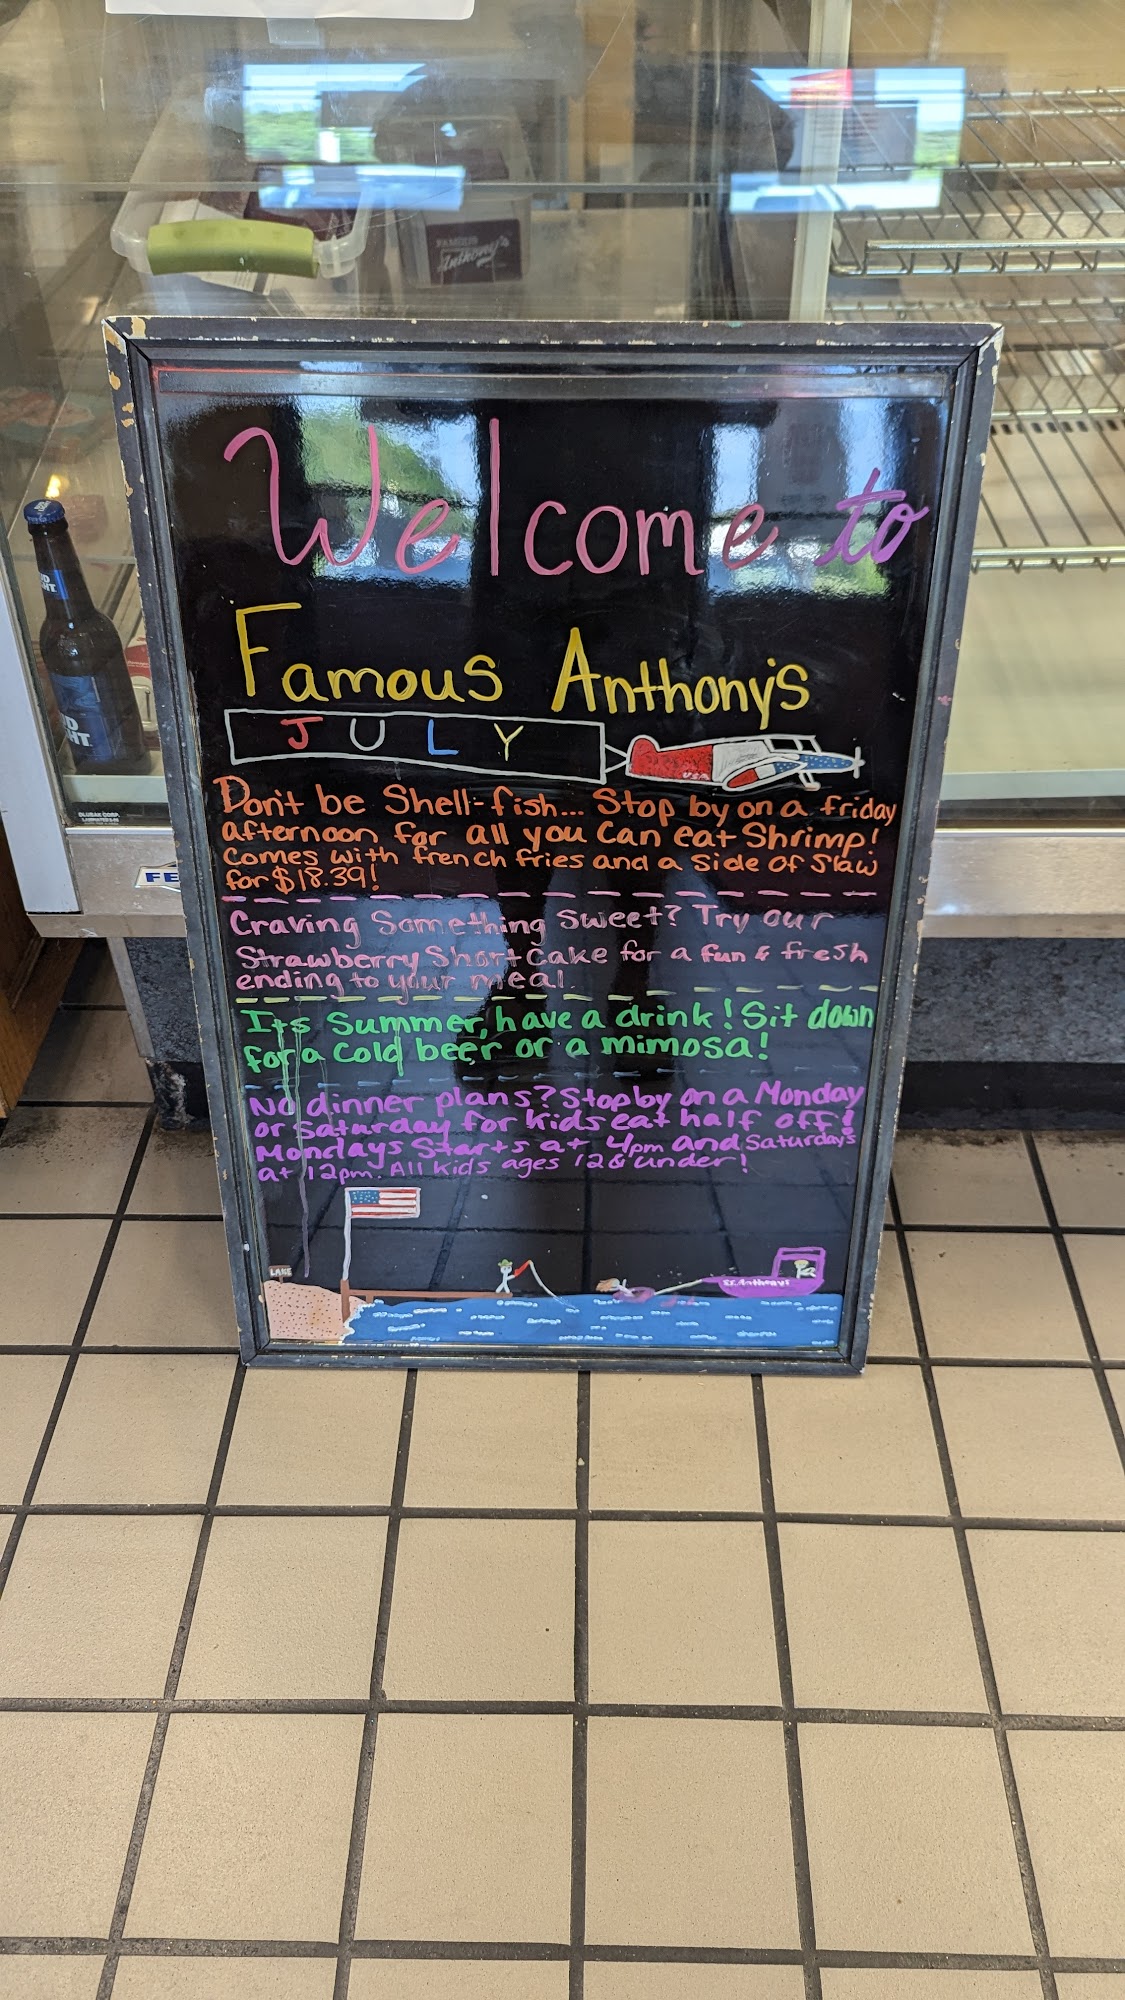 FAMOUS
Anthony's
Welcome to
Famous Anthony's
JULY
USA
Don't be Shell-fish... Stop by on a friday
afternoon for all you can eat Shrimp!
Comes with french fries and a side of slaw
for $18.39!
Craving Something Sweet? Try our
Strawberry Short cake for a fun & fresh
ending to your meal.
Its Summer, have a drink! Sit down
for a cold beer or a mimosa!
No dinner plans? Stop by on a Monday
or Saturday for kids eat half off!
Mondays Starts at 4pm and Saturday's
at 12pm. All kids ages 12 & under!
LAKE
SS. Anthony's